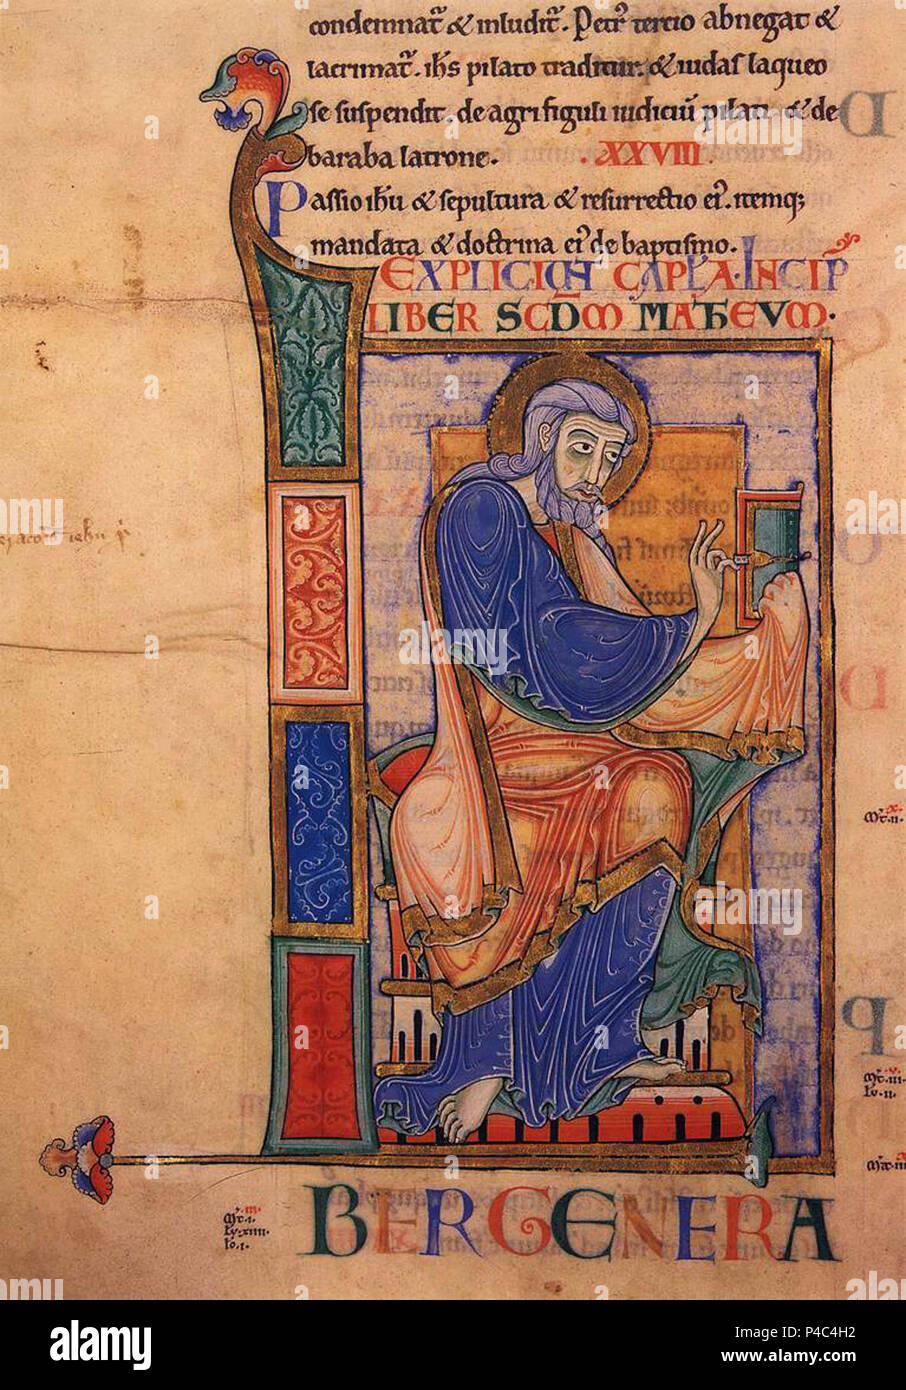 condemnat̄ & inludit̄. Petr᷒ tertio abnegat &
lacrimat̄. ih̄s pilato traditur. & iudas laqueo
se suspendit. de agri figuli iudiciū pilati & de
baraba latrone. .XXVIII.
Passio ih̄u & sepultura & resurrectio ei᷒. itemq;
mandata & doctrina ei᷒ de baptismo.
EXPLICIUNT CAPLA. INCIP̄
LIBER SCD̄M MATHEUM.
LI
BER GENERA
alamy
Image ID: P4C4H2
www.alamy.com